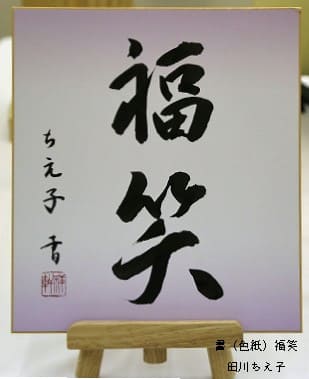 福笑
ちえ子 書
書（色紙）福笑
田川ちえ子